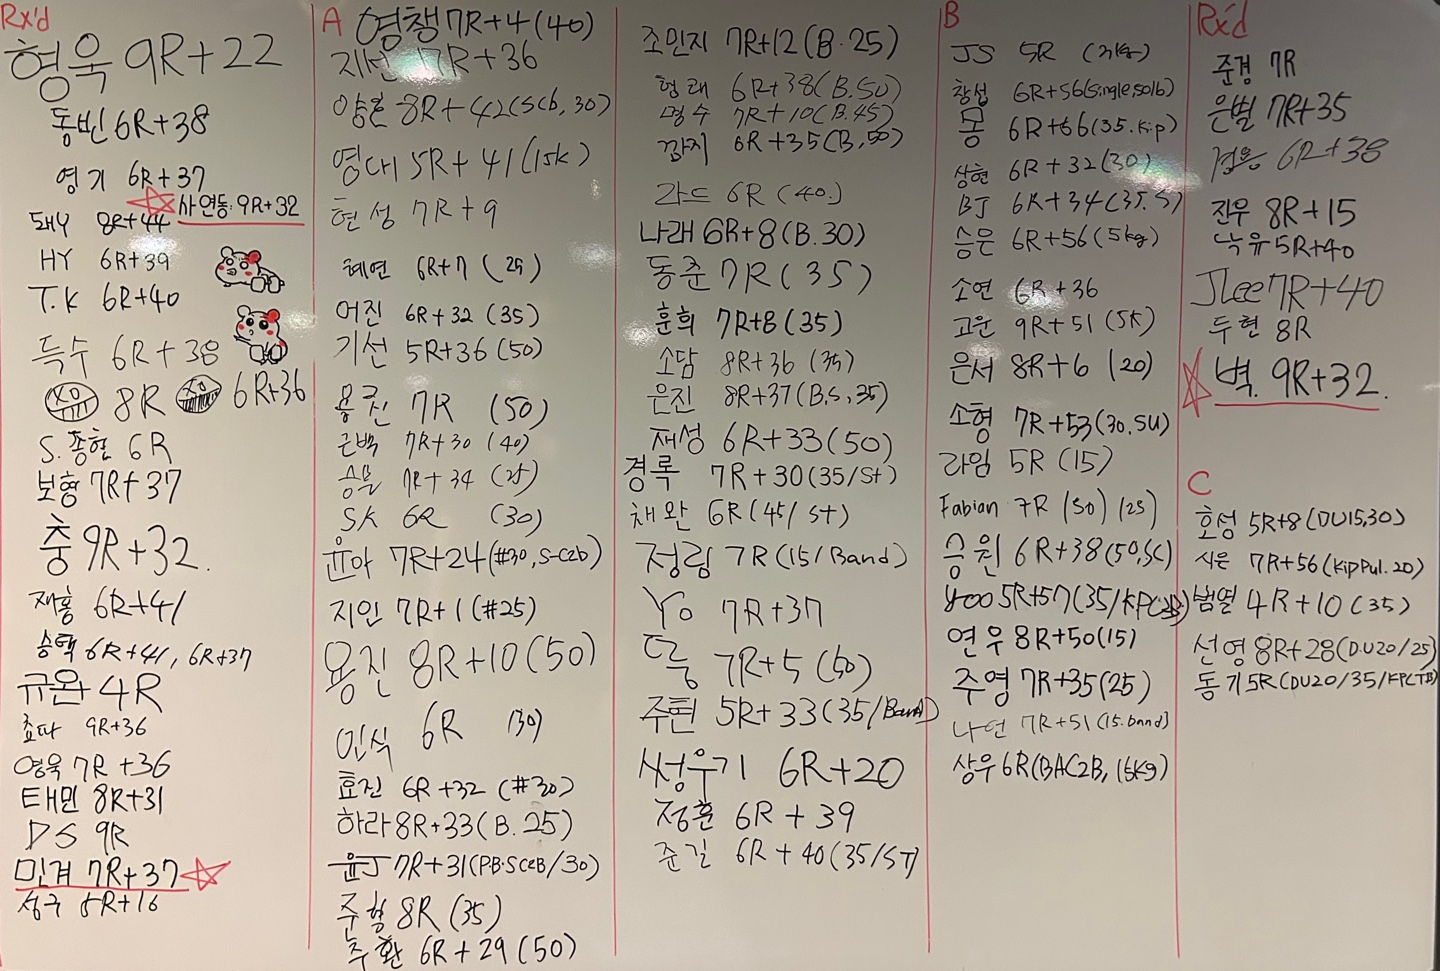 Rx'd
형욱 9R+22
동빈 6R+38
영기 6R+37
사연동: 9R+32
8R+44
HY 6R+39
T.K 6R+40
득수 6R+38
XO 8R XO 6R+36
S.종현 6R
보형 7R+37
충 9R+32.
재홍 6R+41
승택 6R+41, 6R+37
규완 4R
쵸파 9R+36
영욱 7R+36
태민 8R+31
DS 9R
민겨 7R+37
성구 5R+16
A
영챙 7R+4 (40)
지선 7R+36
양훈 8R+42(SCb, 30)
영대 5R+41(15k)
현성 7R+9
혜연 6R+7 (25)
어진 6R+32 (35)
기선 5R+36 (50)
용진 7R (50)
근백 7R+30 (40)
7R+34 (25)
SK 6R (30)
윤아 7R+24(#30, S-C2b)
지인 7R+1 (#25)
용진 8R+10(50)
민식 6R (30)
효진 6R+32 (#30)
하라 8R+33(B.25)
윤J 7R+31(PB.SC2B/30)
준형 8R (35)
주환 6R+29(50)
조민지 7R+12(B.25)
형래 6R+38(B.50)
명수 7R+10(B.45)
깜지 6R+35(B,50)
라드 6R (40.)
나래 6R+8(B.30)
동준 7R(35)
훈희 7R+8(35)
소담 8R+36 (35)
은진 8R+37(B.S, 35)
재성 6R+33(50)
경록 7R+30(35/St)
채완 6R(45/ST)
정림 7R(15/Band)
Yo 7R+37
7R+5 (50)
주현 5R+33(35/Band)
썽우기 6R+20
정훈 6R+39
준길 6R+40(35/ST)
B
JS 5R
창섭 6R+56(Single,50lb)
몽 6R+66(35.Kip)
상현 6R+32(30)
BJ 6R+34(35.S)
승은 6R+56(5kg)
소연 6R+36
고운 9R+51(5K)
은서 8R+6 (20)
소형 7R+53(30.SU)
라임 5R (15)
Fabian 7R (50) (25)
승원 6R+38(50,SC)
yoo 5R+57(35/KPC2B)
연우 8R+50(15)
주영 7R+35(25)
나연 7R+51(15.band)
상우 6R(BAC2B, 16kg)
Rx'd
준경 7R
은별 7R+35
6R+38
진우 8R+15
녹유 5R+40
JLee 7R+40
두현 8R
벽. 9R+32.
C
호성 5R+8(DU15,30)
시은 7R+56(KipPul.20)
범열 4R+10(35)
선영 8R+28(D.U20/25)
동기 5R(DU20/35/KPCTB)